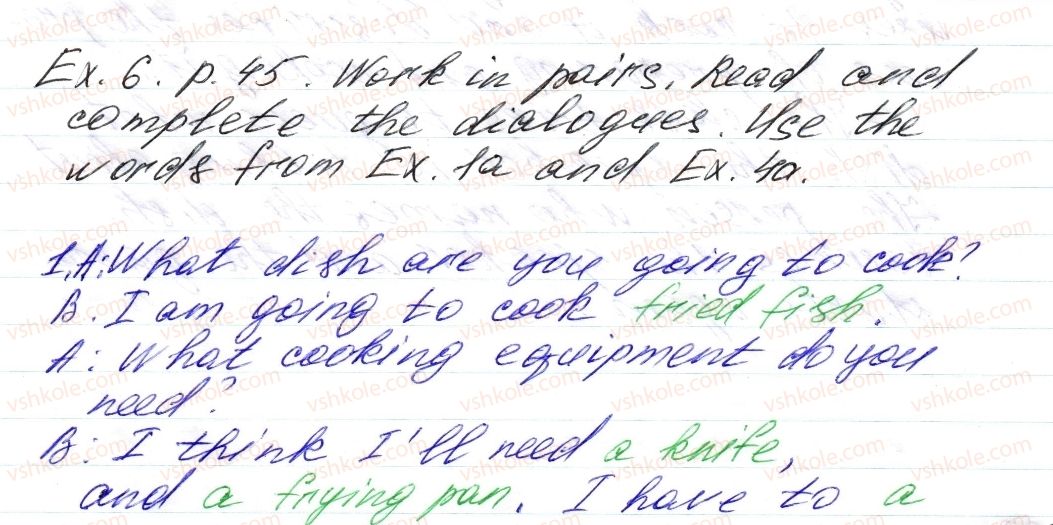 Ex. 6. p. 45. Work in pairs. Read and
complete the dialogues. Use the
words from Ex. 1a and Ex. 4a.
1. A: What dish are you going to cook?
B. I am going to cook fried fish.
A: What cooking equipment do you
need?
B: I think I'll need a knife,
and a frying pan. I have to a